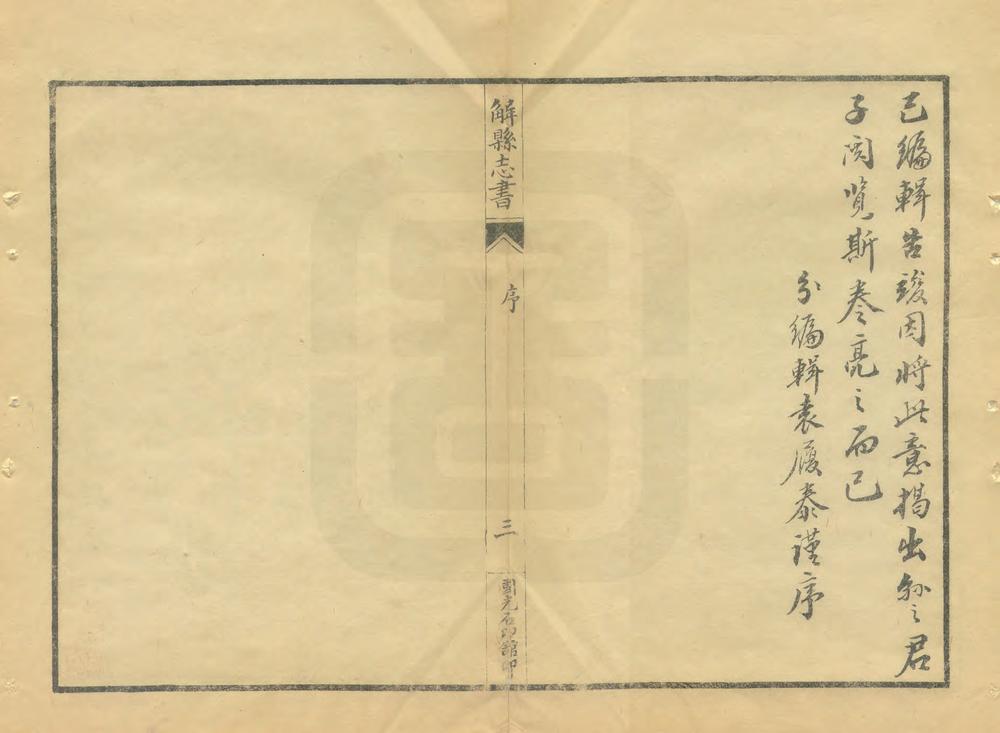 已編輯告竣因將此意揭出之君
子閱覽斯卷亮之而已
分編輯袁履泰謹序
解縣志書
序
三
國光石印館印